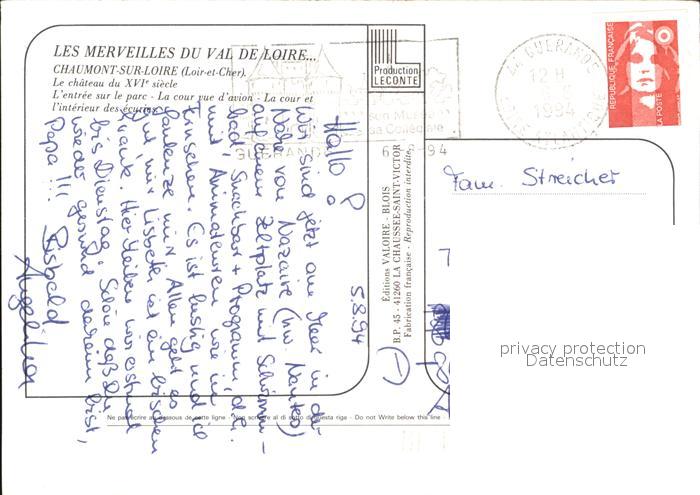 LES MERVEILLES DU VAL DE LOIRE...
CHAUMONT-SUR-LOIRE (Loir-et-Cher).
Le château du XVIᵉ siècle
L'entrée sur le parc - La cour vue d'avion - La cour et
l'intérieur des écuries
Production
LECONTE
son Musée
sa Collégiale
GUERANDE
94
44 GUERANDE
12 H
1994
LOIRE ATLANTIQUE
REPUBLIQUE FRANÇAISE
LA POSTE
5.8.94
Hallo P
Wir sind jetzt am Meer in der
Nähe von Nazaire (nw. Nantes)
auf einem Zeltplatz mit Schwimm-
bad, Snackbar + Programm, d.h.
mit Animateuren wie im
Fernsehen. Es ist lustig und ich
faulenze nur. Allen geht es
gut nur Lisbeth ist ein bisschen
krank. Hier bleiben wir erstmal
bis Dienstag. Schön daß Du
wieder gesund daheim bist,
Papa!!! Bis bald
Angelika
Editions VALOIRE - BLOIS
B.P. 45 - 41260 LA CHAUSSEE-SAINT-VICTOR
Fabrication française - Reproduction interdite.
Fam. Streicher
privacy protection
Datenschutz
Ne pas écrire au dessous de cette ligne - Non scrivere al di sotto di questa riga - Do not Write below this line -